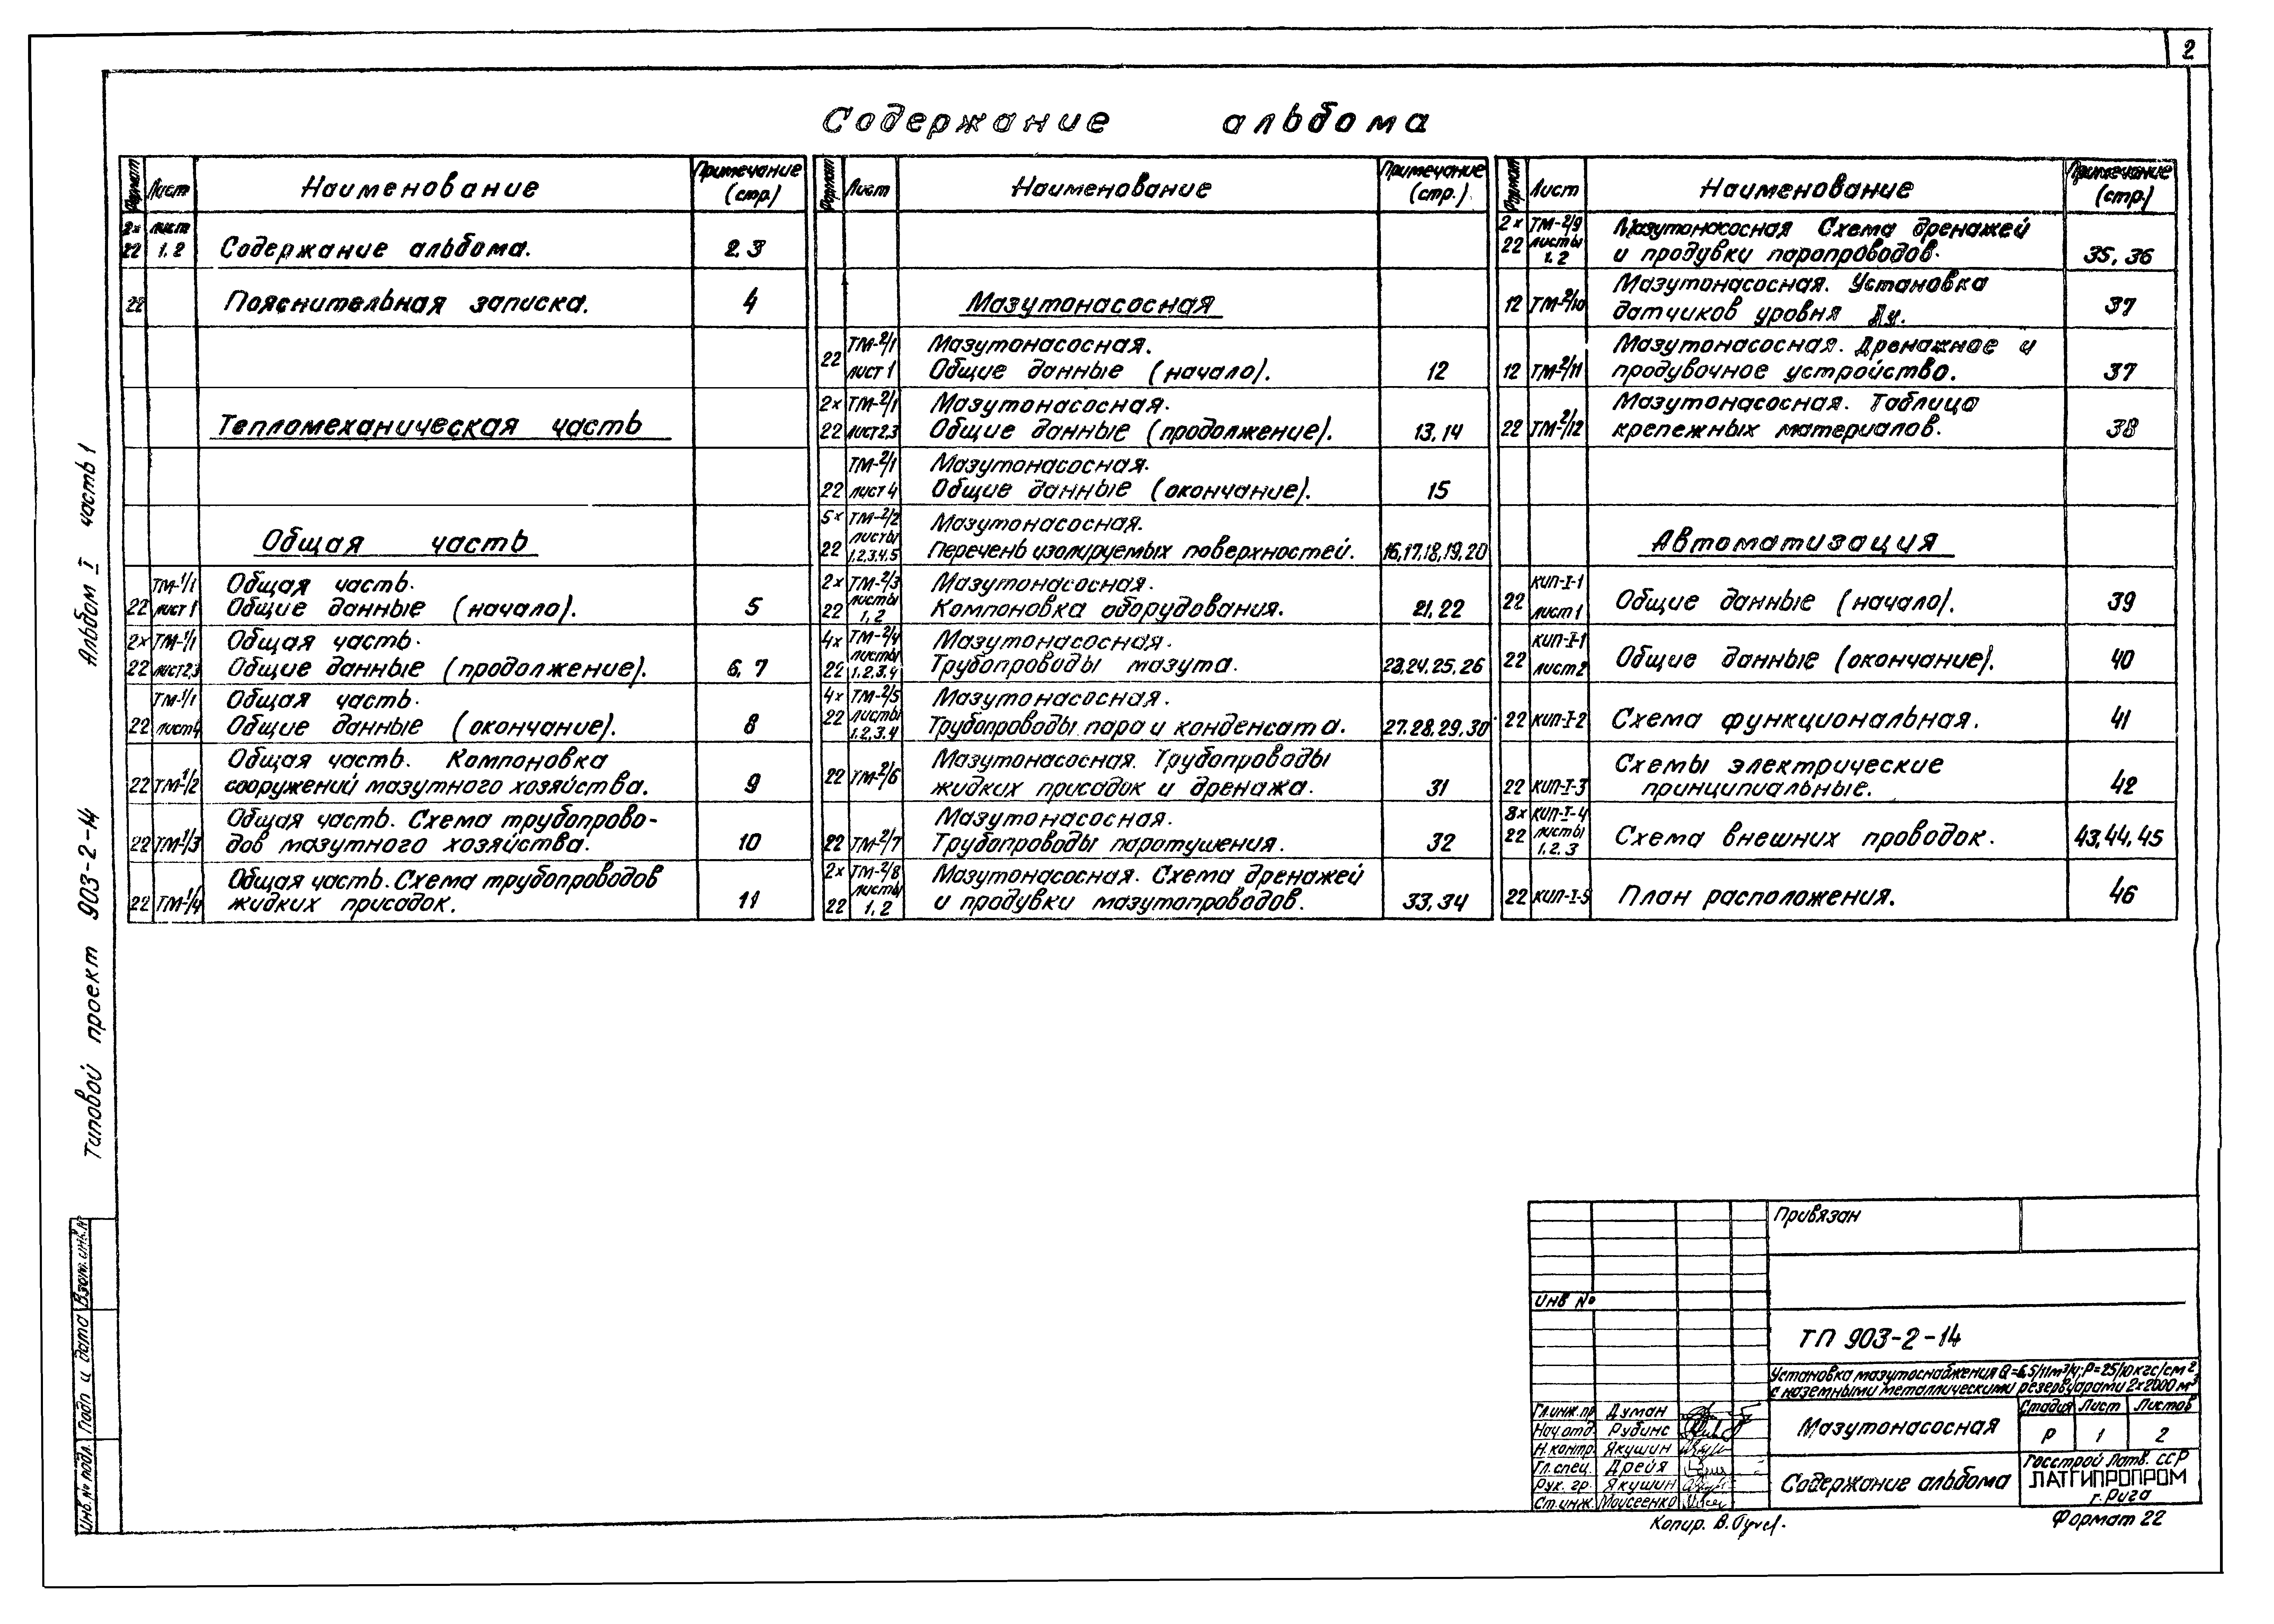 2
Содержание альбома
Формат Лист Наименование Примечание (стр.)
2х 22 лист 1,2 Содержание альбома. 2,3
22 Пояснительная записка. 4
Тепломеханическая часть
Общая часть
ТМ-1/1 Общая часть.
22 лист 1 Общие данные (начало). 5
2х ТМ-1/1 Общая часть.
22 лист 2,3 Общие данные (продолжение). 6, 7
ТМ-1/1 Общая часть.
22 лист 4 Общие данные (окончание). 8
Общая часть. Компоновка
22 ТМ-1/2 сооружений мазутного хозяйства. 9
Общая часть. Схема трубопрово-
22 ТМ-1/3 дов мазутного хозяйства. 10
Общая часть. Схема трубопроводов
22 ТМ-1/4 жидких присадок. 11
Формат Лист Наименование Примечание (стр.)
Мазутонасосная
ТМ-2/1 Мазутонасосная.
22 лист 1 Общие данные (начало). 12
2х ТМ-2/1 Мазутонасосная.
22 лист 2,3 Общие данные (продолжение). 13, 14
ТМ-2/1 Мазутонасосная.
22 лист 4 Общие данные (окончание). 15
5х ТМ-2/2 Мазутонасосная.
22 листы 1,2,3,4,5 Перечень изолируемых поверхностей. 16,17,18,19,20
2х ТМ-2/3 Мазутонасосная.
22 листы 1,2 Компоновка оборудования. 21, 22
4х ТМ-2/4 Мазутонасосная.
22 листы 1,2,3,4 Трубопроводы мазута. 23,24,25,26
4х ТМ-2/5 Мазутонасосная.
22 листы 1,2,3,4 Трубопроводы пара и конденсата. 27,28,29,30
Мазутонасосная. Трубопроводы
22 ТМ-2/6 жидких присадок и дренажа. 31
Мазутонасосная.
22 ТМ-2/7 Трубопроводы паротушения. 32
2х ТМ-2/8 Мазутонасосная. Схема дренажей
22 листы 1,2 и продувки мазутопроводов. 33, 34
Формат Лист Наименование Примечание (стр.)
2х ТМ-2/9 Мазутонасосная Схема дренажей
22 листы 1,2 и продувки паропроводов. 35, 36
Мазутонасосная. Установка
12 ТМ-2/10 датчиков уровня Ду. 37
Мазутонасосная. Дренажное и
12 ТМ-2/11 продувочное устройство. 37
Мазутонасосная. Таблица
22 ТМ-2/12 крепежных материалов. 38
Автоматизация
22 КИП-I-1 лист 1 Общие данные (начало). 39
22 КИП-I-1 лист 2 Общие данные (окончание). 40
22 КИП-I-2 Схема функциональная. 41
Схемы электрические
22 КИП-I-3 принципиальные. 42
8х КИП-I-4
22 листы 1,2,3 Схема внешних проводок. 43, 44, 45
22 КИП-I-5 План расположения. 46
Типовой проект 903-2-14 Альбом I часть 1
Инв. № подл. Подп и дата Взам. инв. №
Привязан
Инв №
ТП 903-2-14
Установка мазутоснабжения Q=6,5/11м³/ч; Р=25/10кгс/см²
с наземными металлическими резервуарами 2х2000м³
Гл.инж.пр Думан
Нач.отд. Рубинс
Н.контр. Якушин
Гл.спец. Дрейя
Рук. гр. Якушин
Ст.инж. Моисеенко
Мазутонасосная
Стадия Лист Листов
Р 1 2
Содержание альбома
Госстрой Латв. ССР
ЛАТГИПРОПРОМ
г.Рига
Копир.
Формат 22